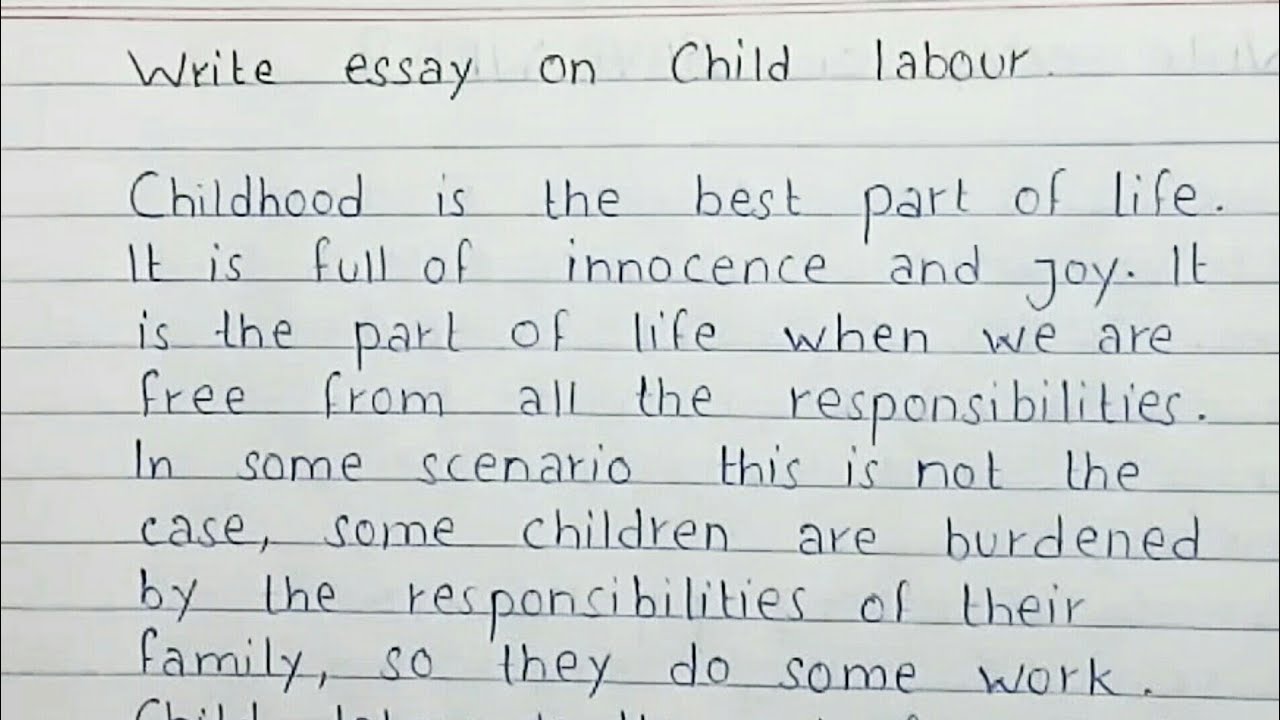 Write essay on Child labour.
Childhood is the best part of life.
It is full of innocence and joy. It
is the part of life when we are
free from all the responsibilities.
In some scenario this is not the
case, some children are burdened
by the responsibilities of their
family, so they do some work.
Child